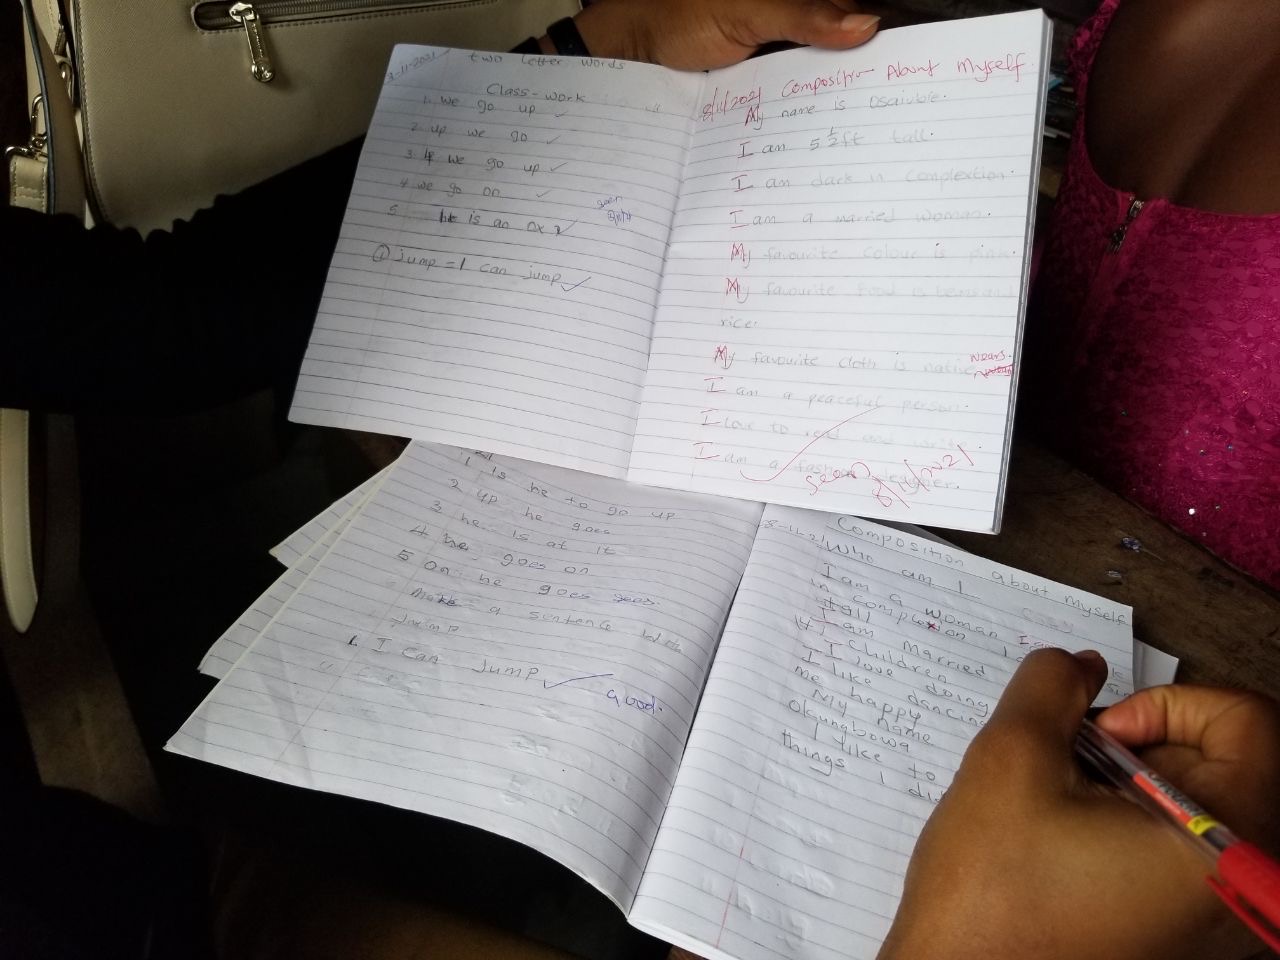 8-11-2021 two letter words
Class-work
1. we go up
2 up we go
3. If we go up
4 we go on
5 he is an ox
seen
① jump = I can jump
8/11/2021 Composition About Myself
My name is Osaivbie.
I am 5 1/2 ft tall.
I am dark in Complextion.
I am a married woman.
My favourite colour is pink.
My favourite food is beans and
rice.
My favourite cloth is native wears.
I am a peaceful person.
I love to read and write.
I am a fashion
seen
8/11/2021
1 is he to go up
2 up he goes
3 he is at it
4 he goes on
5 On he goes
Make a sentence with
Jump
1. I can jump
Good.
8-11-21 Composition about Myself
Who am I
I am a woman I am
in complexion I
tall
I am married
(4) children
I love doing
I like dancing
me happy
My name
Okungbowa
I like to
things I